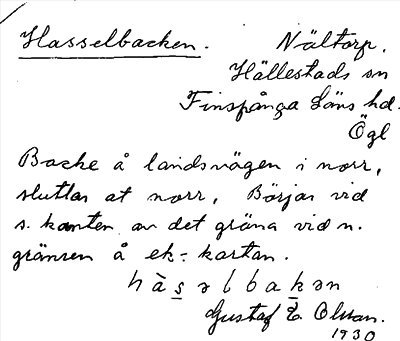 Hasselbacken. Nältorp.
Hällestads sn
Finspånga läns hd.
Ögl
Backe å landsvägen i norr,
sluttar at norr. Börjar vid
s. kanten av det gräna vid n.
gränsen å ek:- kartan.
hàsəlbakən
Gustaf E. Olsson.
1930